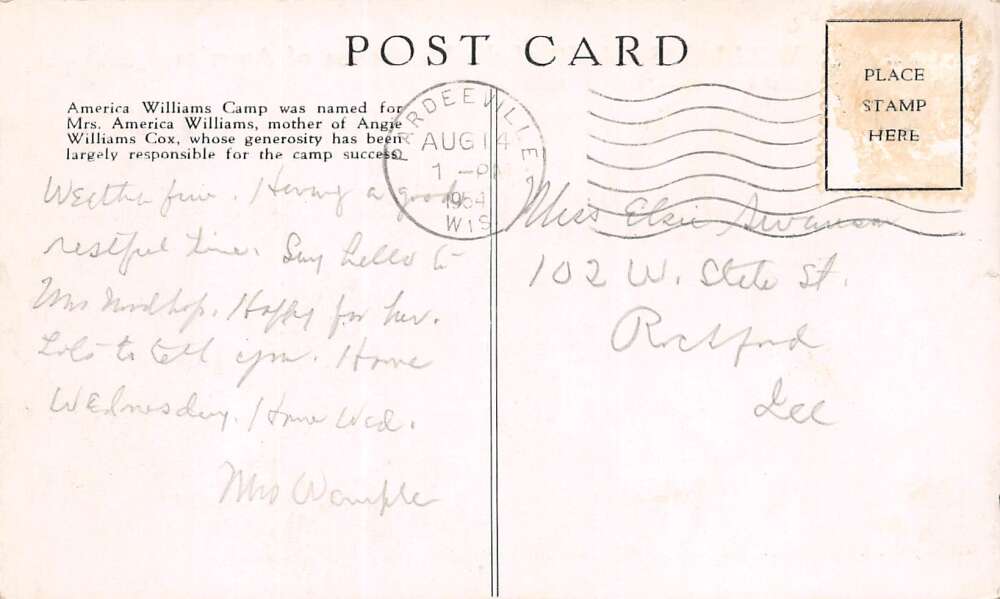 POST CARD
America Williams Camp was named for
Mrs. America Williams, mother of Angie
Williams Cox, whose generosity has been
largely responsible for the camp success.
PARDEEVILLE
AUG 14
1 -PM
1954
WIS.
PLACE
STAMP
HERE
fine. Having a good
restful time. Say hello to
Mrs . Happy for her.
Lots to tell you. Home
Wednesday. Home Wed.
Mrs Wample
Miss Elsie Swanson
102 W. State St.
Rockford
Ill